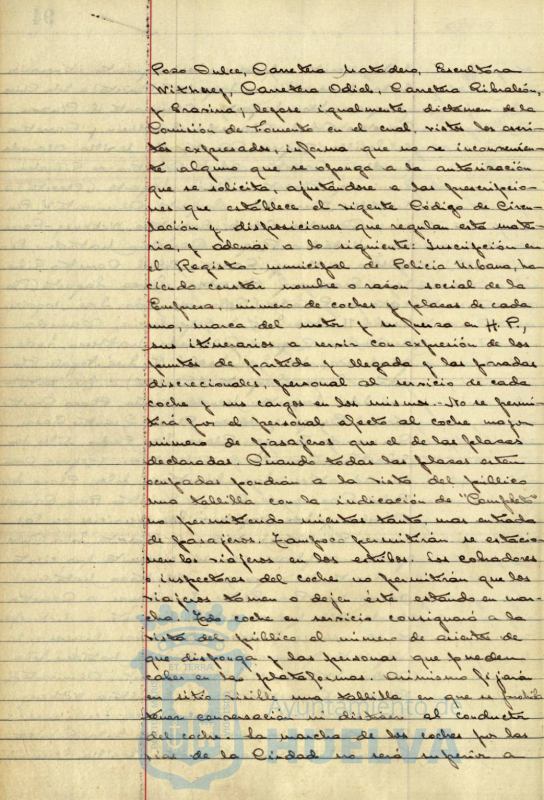 Pozo Dulce, Carretera Matadero, Escultora
Withney, Carretera Odiel, Carretera Gibraleón,
y Gravina; léyose igualmente dictamen de la
Comisión de Fomento en el cual, vistos los escri-
tos expresados, informa que no ve inconvenien-
te alguno que se oponga a la autorización
que se solicita, ajustándose a las prescripcio-
nes que establece el vigente Código de Circu-
lación y disposiciones que regulan esta mate-
ria, y además a lo siguiente: Inscripción en
el Registro municipal de Policía Urbana, ha-
ciendo constar nombre o razon social de la
Empresa, número de coches y plazas de cada
uno, marca del motor y su fuerza en H.P.,
sus itinerarios a servir con expresión de los
puntos de partida y llegada y las paradas
discrecionales, personal al servicio de cada
coche y sus cargos en los mismos.- No se permi-
tirá por el personal afecto al coche mayor
número de pasajeros que el de las plazas
declaradas. Cuando todas las plazas esten
ocupadas pondrán a la vista del público
una tablilla con la indicación de "Completo"
no permitiendo mientras tanto, mas entrada
de pasajeros. Tampoco permitirán se estacio-
nen los viajeros en los estribos. Los cobradores
o inspectores del coche no permitirán que los
viajeros tomen o dejen éste estando en mar-
cha. Todo coche en servicio consignará a la
vista del público el número de asientos de
que disponga y las personas que pueden
caber en las plataformas. Asimismo fijará
en sitio visible una tablilla en que se prohiba
tener conversación ni distraer al conductor
del coche. La marcha de los coches por las
vias de la Ciudad no será superior a
Ayuntamiento de
HUELVA